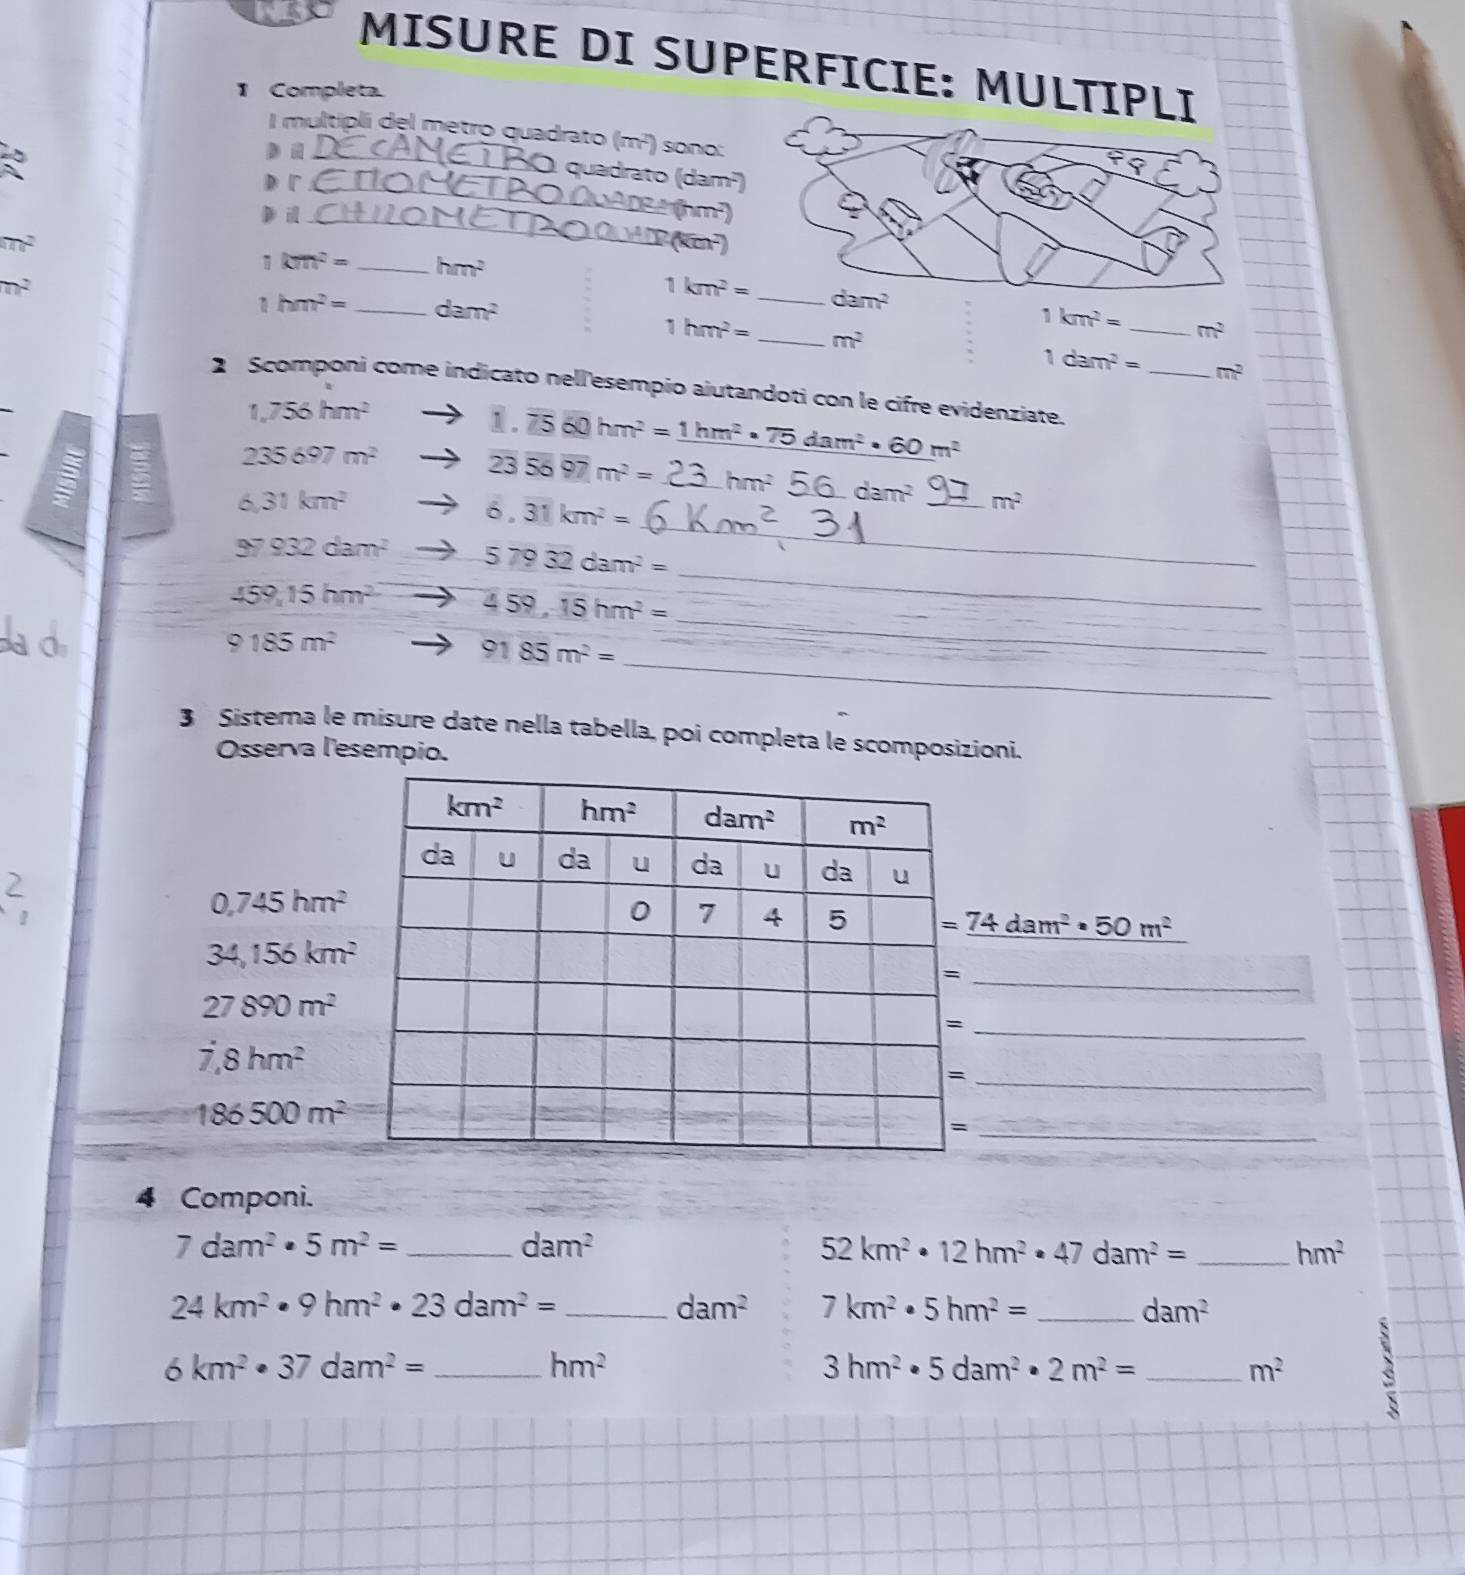 MISURE DI SUPERFICIE: MULTIPLI
1 Completa.
I multipli del metro quadrato (m²) sono:
il DECAMETRO quadrato (dam²)
l' ETTOMETRO QUADRA (hm²)
il CHILOMETRO QUADR (km²)
1 km² = ______ hm²
1 km² = ______ dam²
1 km² = ______ m²
1 hm² = ______ dam²
1 hm² = ______ m²
1 dam² = ______ m²
2 Scomponi come indicato nell'esempio aiutandoti con le cifre evidenziate.
1,756 hm² → 1 , 75 60 hm² = 1 hm² • 75 dam² • 60 m²
235 697 m² → 23 56 97 m² = 23 hm² 56 dam² 97 m²
6,31 km² → 6 , 31 km² = 6 Km² 31
57 932 dam² → 5 79 32 dam² = ______
459,15 hm² → 4 59 , 15 hm² = ______
9 185 m² → 91 85 m² = ______
3 Sistema le misure date nella tabella, poi completa le scomposizioni.
Osserva l'esempio.
km² hm² dam² m²
da u da u da u da u
0,745 hm² 0 7 4 5 = 74 dam² • 50 m²
34,156 km² = ______
27 890 m² = ______
7,8 hm² = ______
186 500 m² = ______
4 Componi.
7 dam² • 5 m² = ______ dam²
52 km² • 12 hm² • 47 dam² = ______ hm²
24 km² • 9 hm² • 23 dam² = ______ dam²
7 km² • 5 hm² = ______ dam²
6 km² • 37 dam² = ______ hm²
3 hm² • 5 dam² • 2 m² = ______ m²
MISURE
MISURE
m²
m²